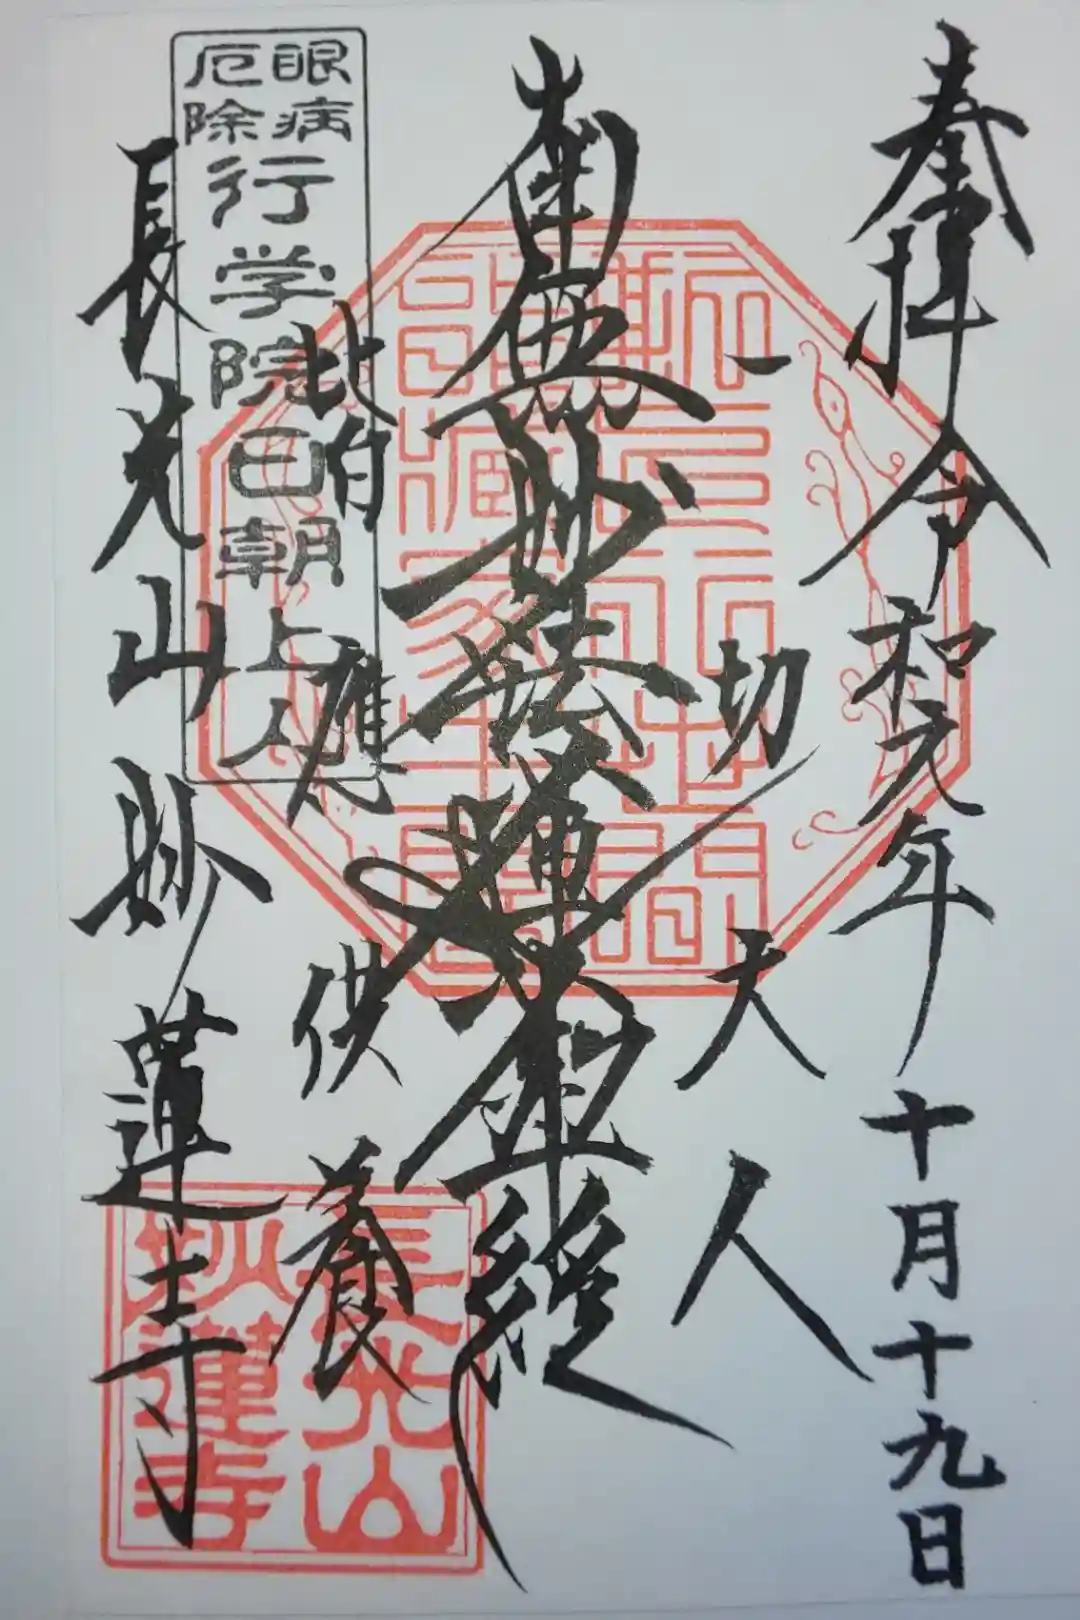 奉拝令和元年十月十九日
一切天人
南無妙法蓮華経
皆應供養
眼病
厄除
行学院日朝上人
長光山妙蓮寺
長光山
妙蓮寺